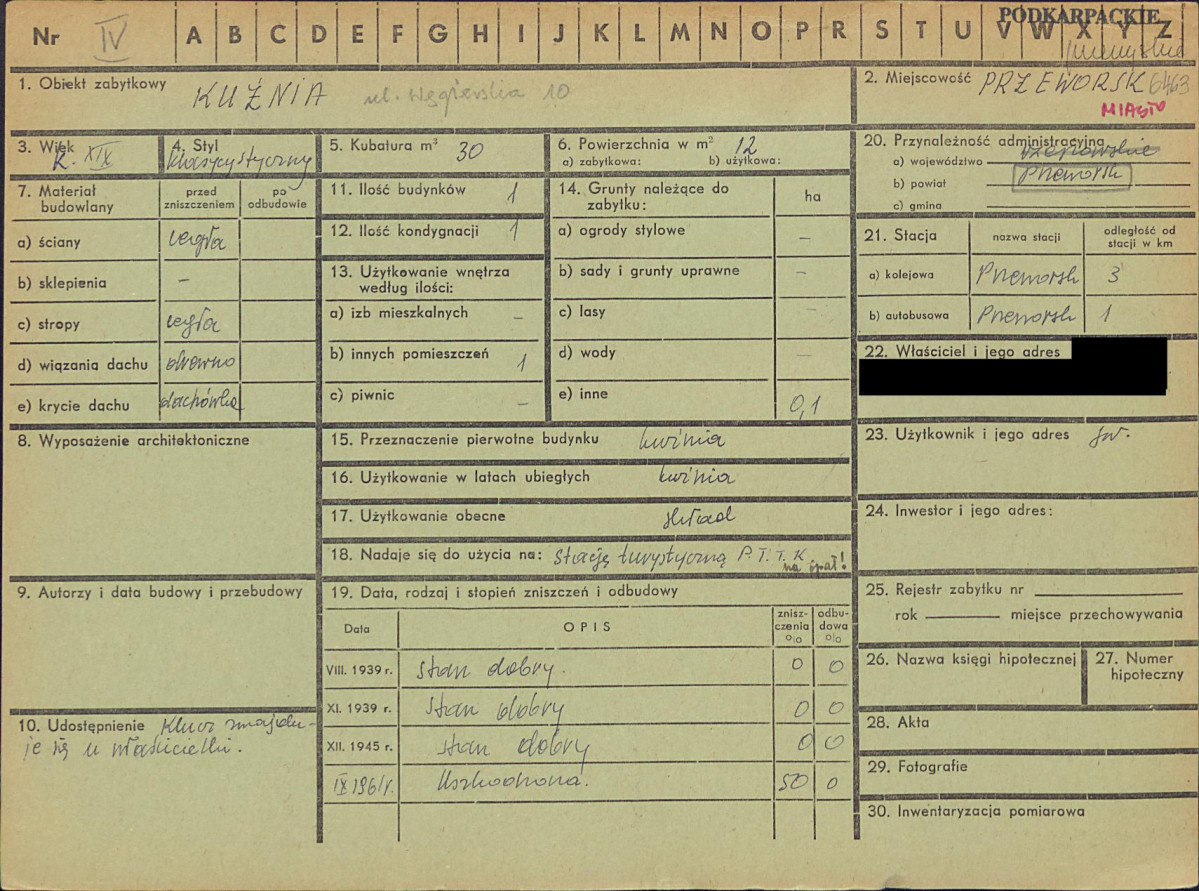 PODKARPACKIE
Nr IV A B C D E F G H I J K L M N O P R S T U V W X Y Z
1. Obiekt zabytkowy KUŹNIA ul. Węgierska 10
2. Miejscowość PRZEWORSK 6463
MIASTO
3. Wiek k. XIX
4. Styl klasycystyczny
5. Kubatura m³ 30
6. Powierzchnia w m² 12
a) zabytkowa: b) użytkowa:
7. Materiał budowlany
przed zniszczeniem
po odbudowie
a) ściany cegła
b) sklepienia –
c) stropy cegła
d) wiązania dachu drewno
e) krycie dachu dachówka
8. Wyposażenie architektoniczne
9. Autorzy i data budowy i przebudowy
10. Udostępnienie Klucz znajdu-
je się u właścicielki.
11. Ilość budynków 1
12. Ilość kondygnacji 1
13. Użytkowanie wnętrza
według ilości:
a) izb mieszkalnych –
b) innych pomieszczeń 1
c) piwnic –
14. Grunty należące do
zabytku:
ha
a) ogrody stylowe –
b) sady i grunty uprawne –
c) lasy –
d) wody –
e) inne 0,1
15. Przeznaczenie pierwotne budynku kuźnia
16. Użytkowanie w latach ubiegłych kuźnia
17. Użytkowanie obecne skład
18. Nadaje się do użycia na: stację turystyczną P.T.T.K.
na opał!
19. Data, rodzaj i stopień zniszczeń i odbudowy
Data
OPIS
znisz-
czenia
%
odbu-
dowa
%
VIII. 1939 r. Stan dobry. 0 0
XI. 1939 r. Stan dobry 0 0
XII. 1945 r. Stan dobry 0 0
IX 1961 r. Uszkodzona. 50 0
20. Przynależność administracyjna
a) województwo rzeszowskie
b) powiat Przeworsk
c) gmina
21. Stacja
nazwa stacji
odległość od
stacji w km
a) kolejowa Przeworsk 3
b) autobusowa Przeworsk 1
22. Właściciel i jego adres
23. Użytkownik i jego adres jw.
24. Inwestor i jego adres:
25. Rejestr zabytku nr
rok miejsce przechowywania
26. Nazwa księgi hipotecznej
27. Numer
hipoteczny
28. Akta
29. Fotografie
30. Inwentaryzacja pomiarowa